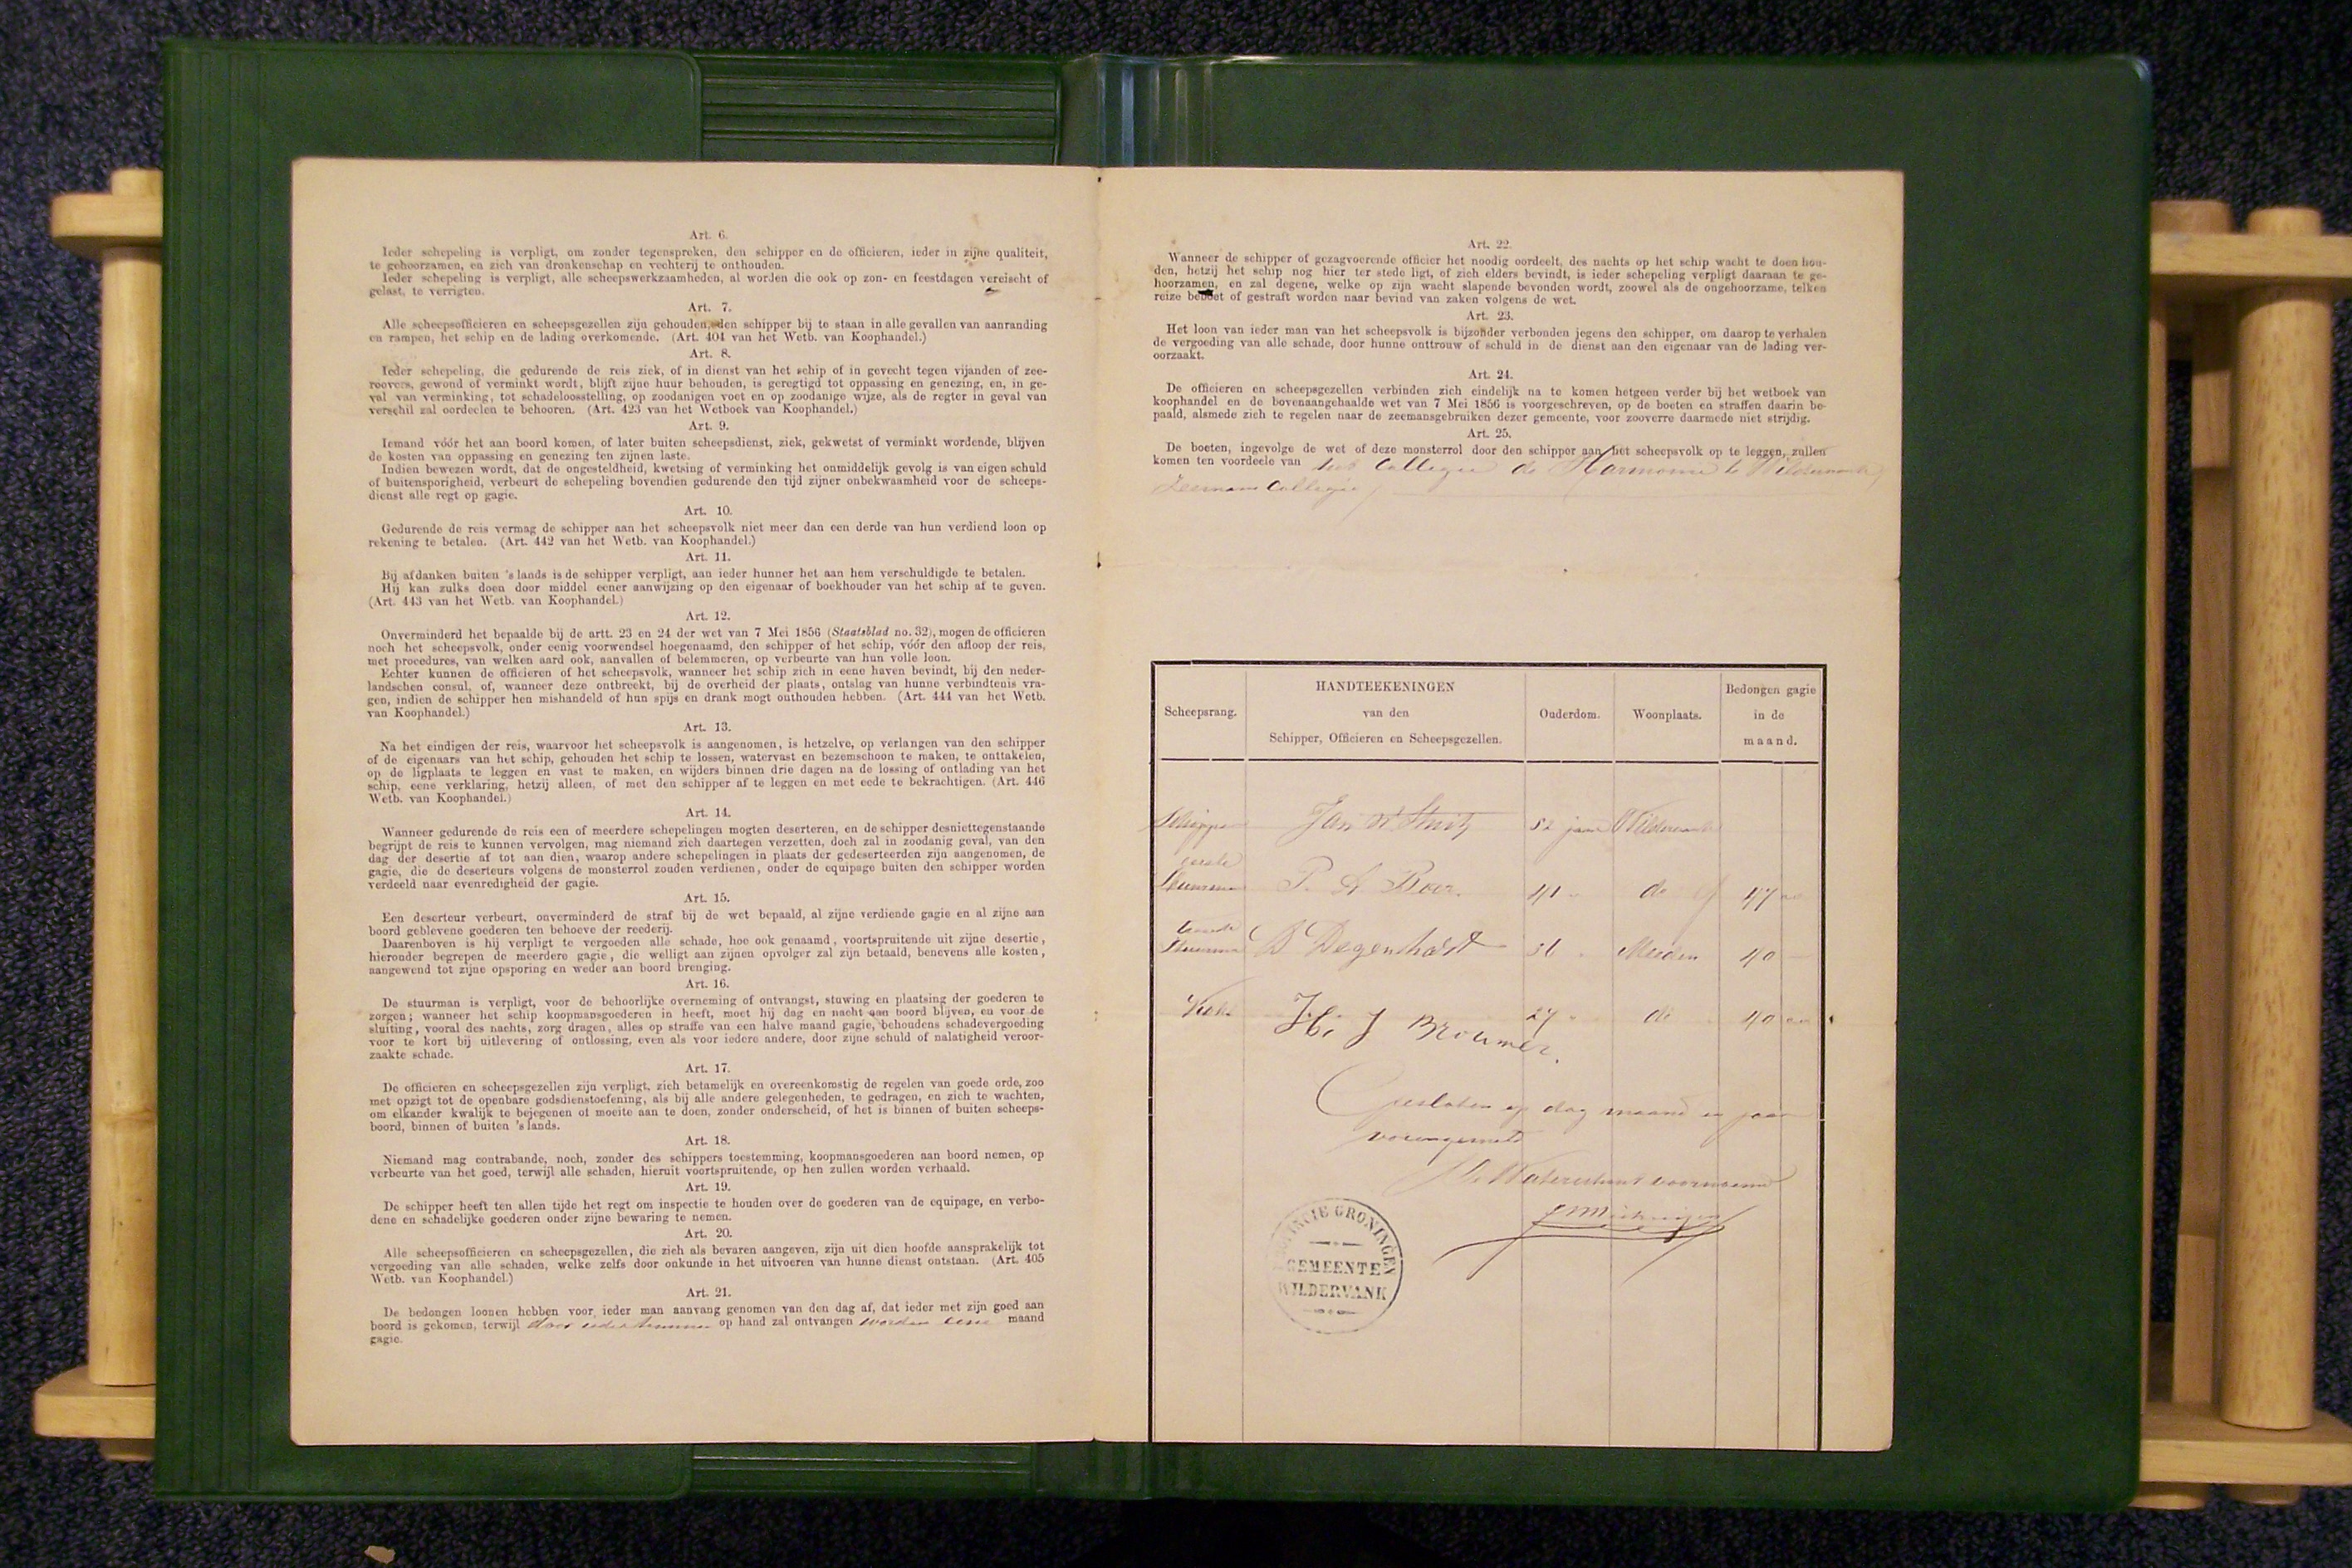 Art. 6.
Ieder schepeling is verpligt, om zonder tegenspreken, den schipper en de officieren, ieder in zijne qualiteit,
te gehoorzamen, en zich van dronkenschap en vechterij te onthouden.
Ieder schepeling is verpligt, alle scheepswerkzaamheden, al worden die ook op zon- en feestdagen vereischt of
gelast, te verrigten.
Art. 7.
Alle scheepsofficieren en scheepsgezellen zijn gehouden, den schipper bij te staan in alle gevallen van aanranding
en rampen, het schip en de lading overkomende. (Art. 404 van het Wetb. van Koophandel.)
Art. 8.
Ieder schepeling, die gedurende de reis ziek, of in dienst van het schip of in gevecht tegen vijanden of zee-
roovers, gewond of verminkt wordt, blijft zijne huur behouden, is geregtigd tot oppassing en genezing, en, in ge-
val van verminking, tot schadeloosstelling, op zoodanigen voet en op zoodanige wijze, als de regter in geval van
verschil zal oordeelen te behooren. (Art. 423 van het Wetboek van Koophandel.)
Art. 9.
Iemand vóór het aan boord komen, of later buiten scheepsdienst, ziek, gekwetst of verminkt wordende, blijven
de kosten van oppassing en genezing ten zijnen laste.
Indien bewezen wordt, dat de ongesteldheid, kwetsing of verminking het onmiddelijk gevolg is van eigen schuld
of buitensporigheid, verbeurt de schepeling bovendien gedurende den tijd zijner onbekwaamheid voor de scheeps-
dienst alle regt op gagie.
Art. 10.
Gedurende de reis vermag de schipper aan het scheepsvolk niet meer dan een derde van hun verdiend loon op
rekening te betalen. (Art. 442 van het Wetb. van Koophandel.)
Art. 11.
Bij afdanken buiten 's lands is de schipper verpligt, aan ieder hunner het aan hem verschuldigde te betalen.
Hij kan zulks doen door middel eener aanwijzing op den eigenaar of boekhouder van het schip af te geven.
(Art. 443 van het Wetb. van Koophandel.)
Art. 12.
Onverminderd het bepaalde bij de artt. 23 en 24 der wet van 7 Mei 1856 (Staatsblad no. 32), mogen de officieren
noch het scheepsvolk, onder eenig voorwendsel hoegenaamd, den schipper of het schip, vóór den afloop der reis,
met procedures, van welken aard ook, aanvallen of belemmeren, op verbeurte van hun volle loon.
Echter kunnen de officieren of het scheepsvolk, wanneer het schip zich in eene haven bevindt, bij den neder-
landschen consul, of, wanneer deze ontbreekt, bij de overheid der plaats, ontslag van hunne verbindtenis vra-
gen, indien de schipper hen mishandeld of hun spijs en drank mogt onthouden hebben. (Art. 444 van het Wetb.
van Koophandel.)
Art. 13.
Na het eindigen der reis, waarvoor het scheepsvolk is aangenomen, is hetzelve, op verlangen van den schipper
of de eigenaars van het schip, gehouden het schip te lossen, watervast en bezemschoon te maken, te onttakelen,
op de ligplaats te leggen en vast te maken, en wijders binnen drie dagen na de lossing of ontlading van het
schip, eene verklaring, hetzij alleen, of met den schipper af te leggen en met eede te bekrachtigen. (Art. 446
Wetb. van Koophandel.)
Art. 14.
Wanneer gedurende de reis een of meerdere schepelingen mogten deserteren, en de schipper desniettegenstaande
begrijpt de reis te kunnen vervolgen, mag niemand zich daartegen verzetten, doch zal in zoodanig geval, van den
dag der desertie af tot aan dien, waarop andere schepelingen in plaats der gedeserteerden zijn aangenomen, de
gagie, die de deserteurs volgens de monsterrol zouden verdienen, onder de equipage buiten den schipper worden
verdeeld naar evenredigheid der gagie.
Art. 15.
Een deserteur verbeurt, onverminderd de straf bij de wet bepaald, al zijne verdiende gagie en al zijne aan
boord geblevene goederen ten behoeve der reederij.
Daarenboven is hij verpligt te vergoeden alle schade, hoe ook genaamd, voortspruitende uit zijne desertie,
hieronder begrepen de meerdere gagie, die welligt aan zijnen opvolger zal zijn betaald, benevens alle kosten,
aangewend tot zijne opsporing en weder aan boord brenging.
Art. 16.
De stuurman is verpligt, voor de behoorlijke overneming of ontvangst, stuwing en plaatsing der goederen te
zorgen; wanneer het schip koopmansgoederen in heeft, moet hij dag en nacht aan boord blijven, en voor de
sluiting, vooral des nachts, zorg dragen, alles op straffe van een halve maand gagie, behoudens schadevergoeding
voor te kort bij uitlevering of ontlossing, even als voor iedere andere, door zijne schuld of nalatigheid veroor-
zaakte schade.
Art. 17.
De officieren en scheepsgezellen zijn verpligt, zich betamelijk en overeenkomstig de regelen van goede orde, zoo
met opzigt tot de openbare godsdienstoefening, als bij alle andere gelegenheden, te gedragen, en zich te wachten,
om elkander kwalijk te bejegenen of moeite aan te doen, zonder onderscheid, of het is binnen of buiten scheeps-
boord, binnen of buiten 's lands.
Art. 18.
Niemand mag contrabande, noch, zonder des schippers toestemming, koopmansgoederen aan boord nemen, op
verbeurte van het goed, terwijl alle schaden, hieruit voortspruitende, op hen zullen worden verhaald.
Art. 19.
De schipper heeft ten allen tijde het regt om inspectie te houden over de goederen van de equipage, en verbo-
dene en schadelijke goederen onder zijne bewaring te nemen.
Art. 20.
Alle scheepsofficieren en scheepsgezellen, die zich als bevaren aangeven, zijn uit dien hoofde aansprakelijk tot
vergoeding van alle schaden, welke zelfs door onkunde in het uitvoeren van hunne dienst ontstaan. (Art. 405
Wetb. van Koophandel.)
Art. 21.
De bedongen loonen hebben voor ieder man aanvang genomen van den dag af, dat ieder met zijn goed aan
boord is gekomen, terwijl door ieder hunner op hand zal ontvangen worden eene maand
gagie.
Art. 22.
Wanneer de schipper of gezagvoerende officier het noodig oordeelt, des nachts op het schip wacht te doen hou-
den, hetzij het schip nog hier ter stede ligt, of zich elders bevindt, is ieder schepeling verpligt daaraan te ge-
hoorzamen, en zal degene, welke op zijn wacht slapende bevonden wordt, zoowel als de ongehoorzame, telken
reize beboet of gestraft worden naar bevind van zaken volgens de wet.
Art. 23.
Het loon van ieder man van het scheepsvolk is bijzonder verbonden jegens den schipper, om daarop te verhalen
de vergoeding van alle schade, door hunne onttrouw of schuld in de dienst aan den eigenaar van de lading ver-
oorzaakt.
Art. 24.
De officieren en scheepsgezellen verbinden zich eindelijk na te komen hetgeen verder bij het wetboek van
koophandel en de bovenaangehaalde wet van 7 Mei 1856 is voorgeschreven, op de boeten en straffen daarin be-
paald, alsmede zich te regelen naar de zeemansgebruiken dezer gemeente, voor zooverre daarmede niet strijdig.
Art. 25.
De boeten, ingevolge de wet of deze monsterrol door den schipper aan het scheepsvolk op te leggen, zullen
komen ten voordeele van het Collegie de Harmonie te Wildervank
Zeemans Collegie
Scheepsrang.
HANDTEEKENINGEN
van den
Schipper, Officieren en Scheepsgezellen.
Ouderdom.
Woonplaats.
Bedongen gagie
in de
maand.
Schipper Jan 52 jaar Wildervank
eerste
Stuurman P. Boer. 41 do f 47
tweede
Stuurman D Degenhardt 36 Meeden 40 —
Kok H. J Brouwer. 27 do 40
Gesloten op dag maand en jaar
vorengemeld
De Waterschout voornoemd
PROVINCIE GRONINGEN
GEMEENTE
WILDERVANK